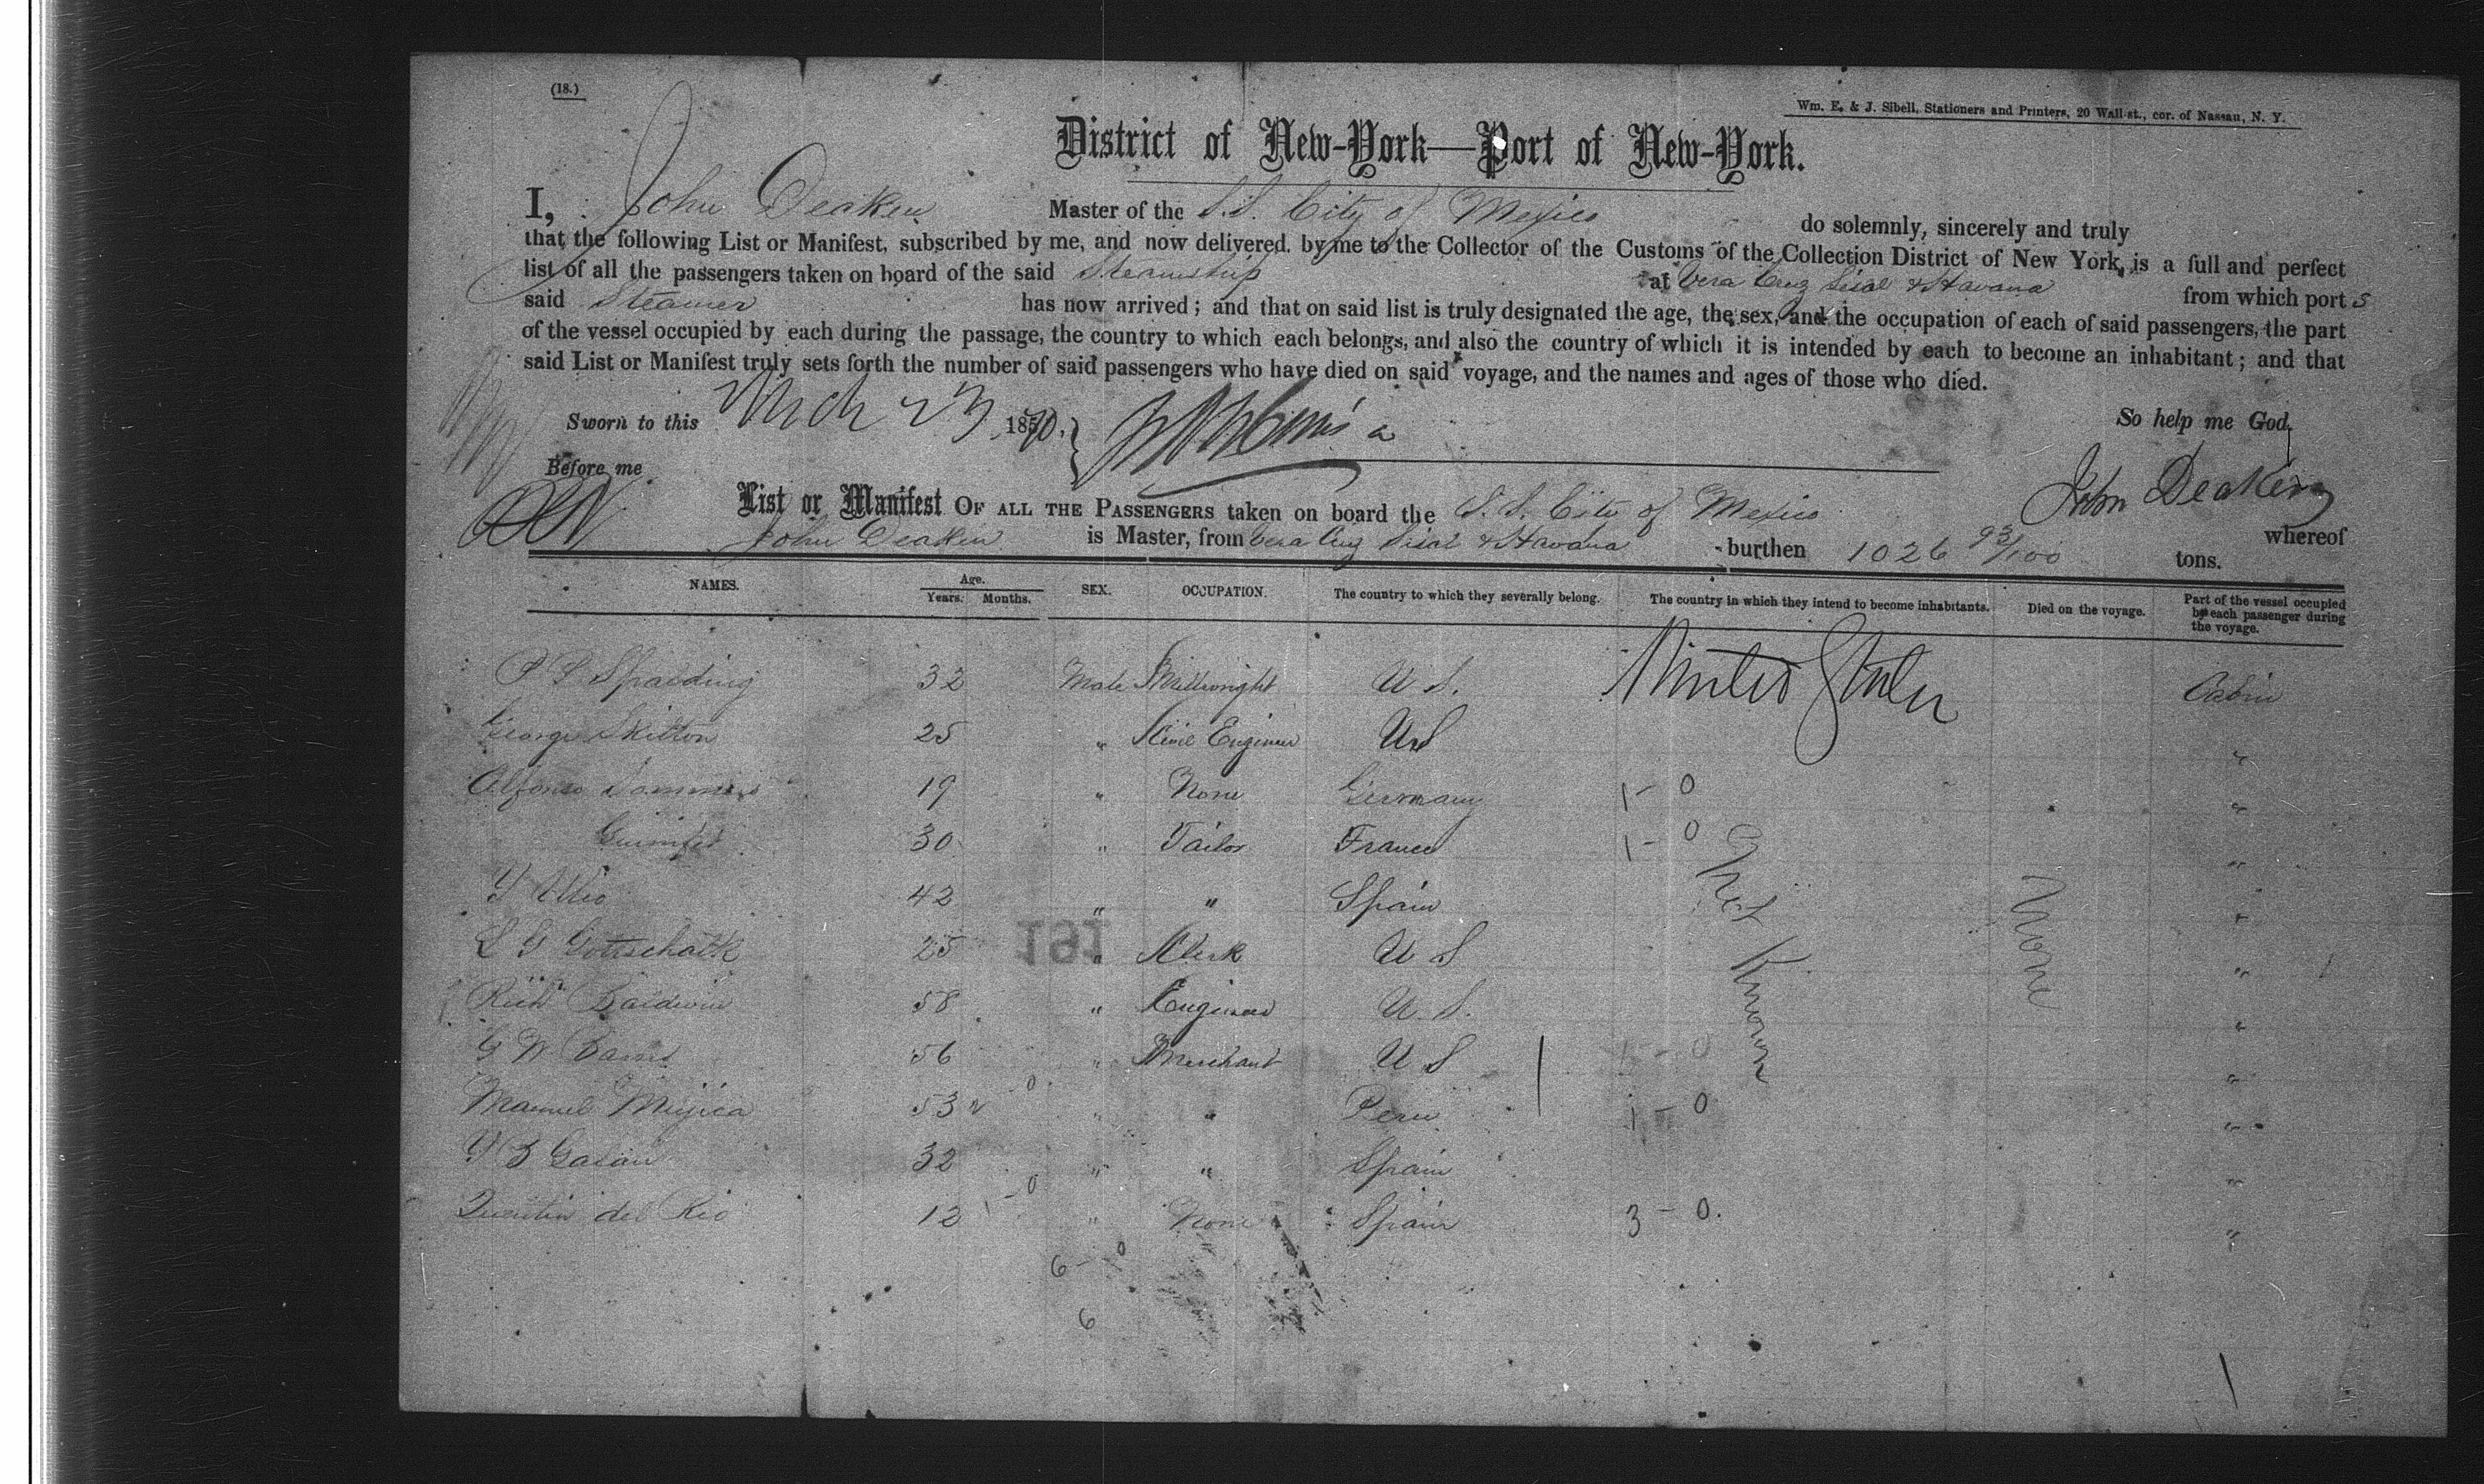 (18.)
Wm. E. & J. Sibell, Stationers and Printers, 20 Wall-st., cor. of Nassau, N. Y.
District of New-York—Port of New-York.
I, John Deaken Master of the S.S. City of Mexico do solemnly, sincerely and truly
that the following List or Manifest, subscribed by me, and now delivered by me to the Collector of the Customs of the Collection District of New York, is a full and perfect
list of all the passengers taken on board of the said Steamship at Vera Cruz Sisal & Havana from which port s
said Steamer has now arrived; and that on said list is truly designated the age, the sex, and the occupation of each of said passengers, the part
of the vessel occupied by each during the passage, the country to which each belongs, and also the country of which it is intended by each to become an inhabitant; and that
said List or Manifest truly sets forth the number of said passengers who have died on said voyage, and the names and ages of those who died.
Sworn to this Mch 23 1870. So help me God.
Before me John Deaken
List or Manifest OF ALL THE PASSENGERS taken on board the S.S. City of Mexico whereof
John Deaken is Master, from Vera Cruz Sisal & Havana burthen 1026 93/100 tons.
NAMES. Age. Years. Months. SEX. OCCUPATION. The country to which they severally belong. The country in which they intend to become inhabitants. Died on the voyage. Part of the vessel occupied by each passenger during the voyage.
P S Spalding 32 Male Millwright U S. United States Cabin
George Skilton 25 " Civil Engineer US "
Alfonso 19 " None Germany 1 - 0 "
30 " Tailor France 1 - 0 "
42 " " Spain "
L G Gottschalk 25 " Clerk U S "
Richd Baldwin 58 " Engineer U.S. "
G W 56 " Merchant U S 1 - 0 "
Manuel Mujica 53 " " Peru 1 - 0 "
Y B Galan 32 " " Spain "
Quintin del Rio 12 1 - 0 " None Spain 3 - 0. "
Not Known
None
191
6 - 0
6